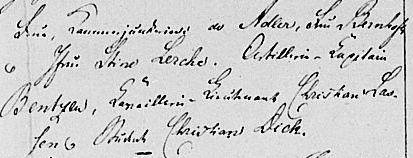 Fru, Kammerjunkerinde de Adler, Fru Bernhoft
Jfru Stine Lerche. Artillerie-Kapitain
Bentzen, Kavallerie-Lieutenant Christian Las-
sen Student Christian Dick.